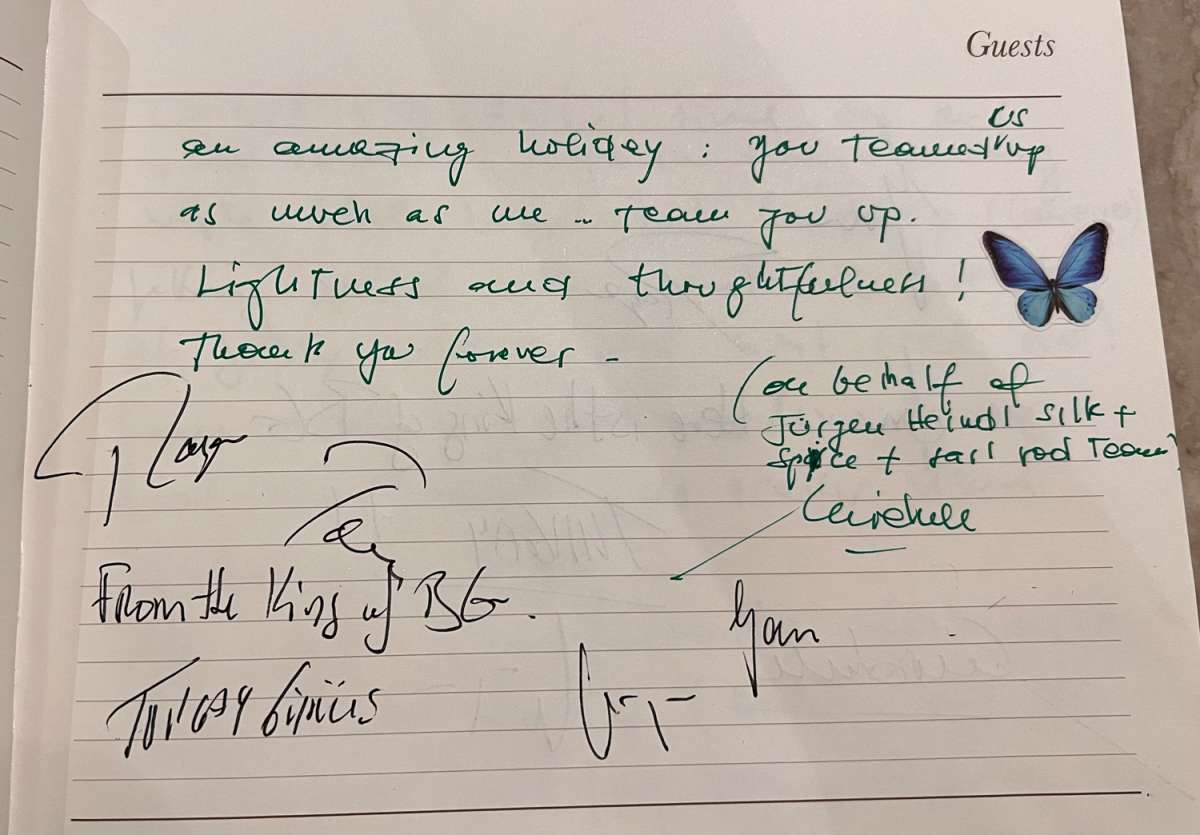 Guests
an amazing holiday : you teamed us up
as much as we .. team you up.
Lightness and thoughtfulness !
Thank you forever -
(on behalf of
Jürgen Heindl silk +
spice + rail rod Team)
From the King of BG.
Yan